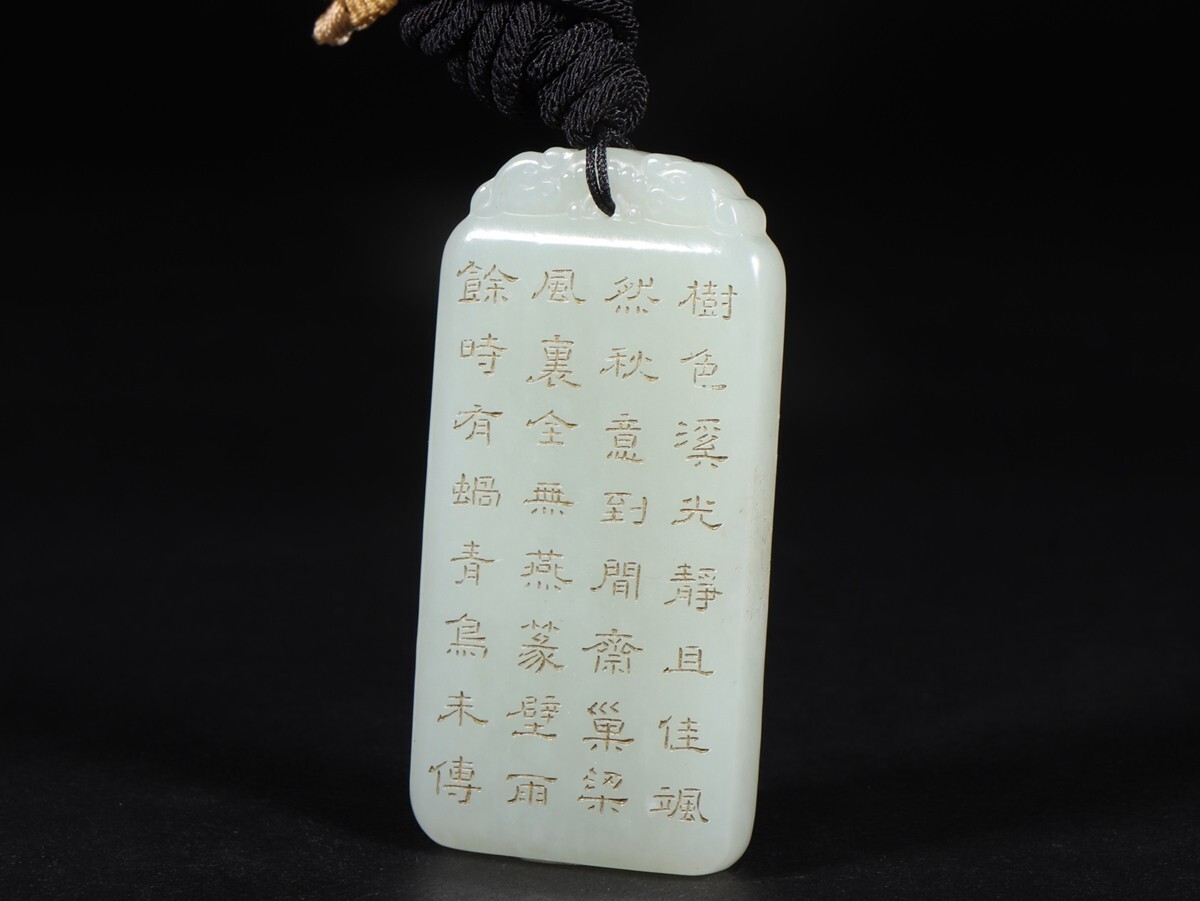 樹色溪光靜且佳颯
然秋意到間齋巢梁
風裏全無燕篆壁雨
餘時有蝸青鳥未傳